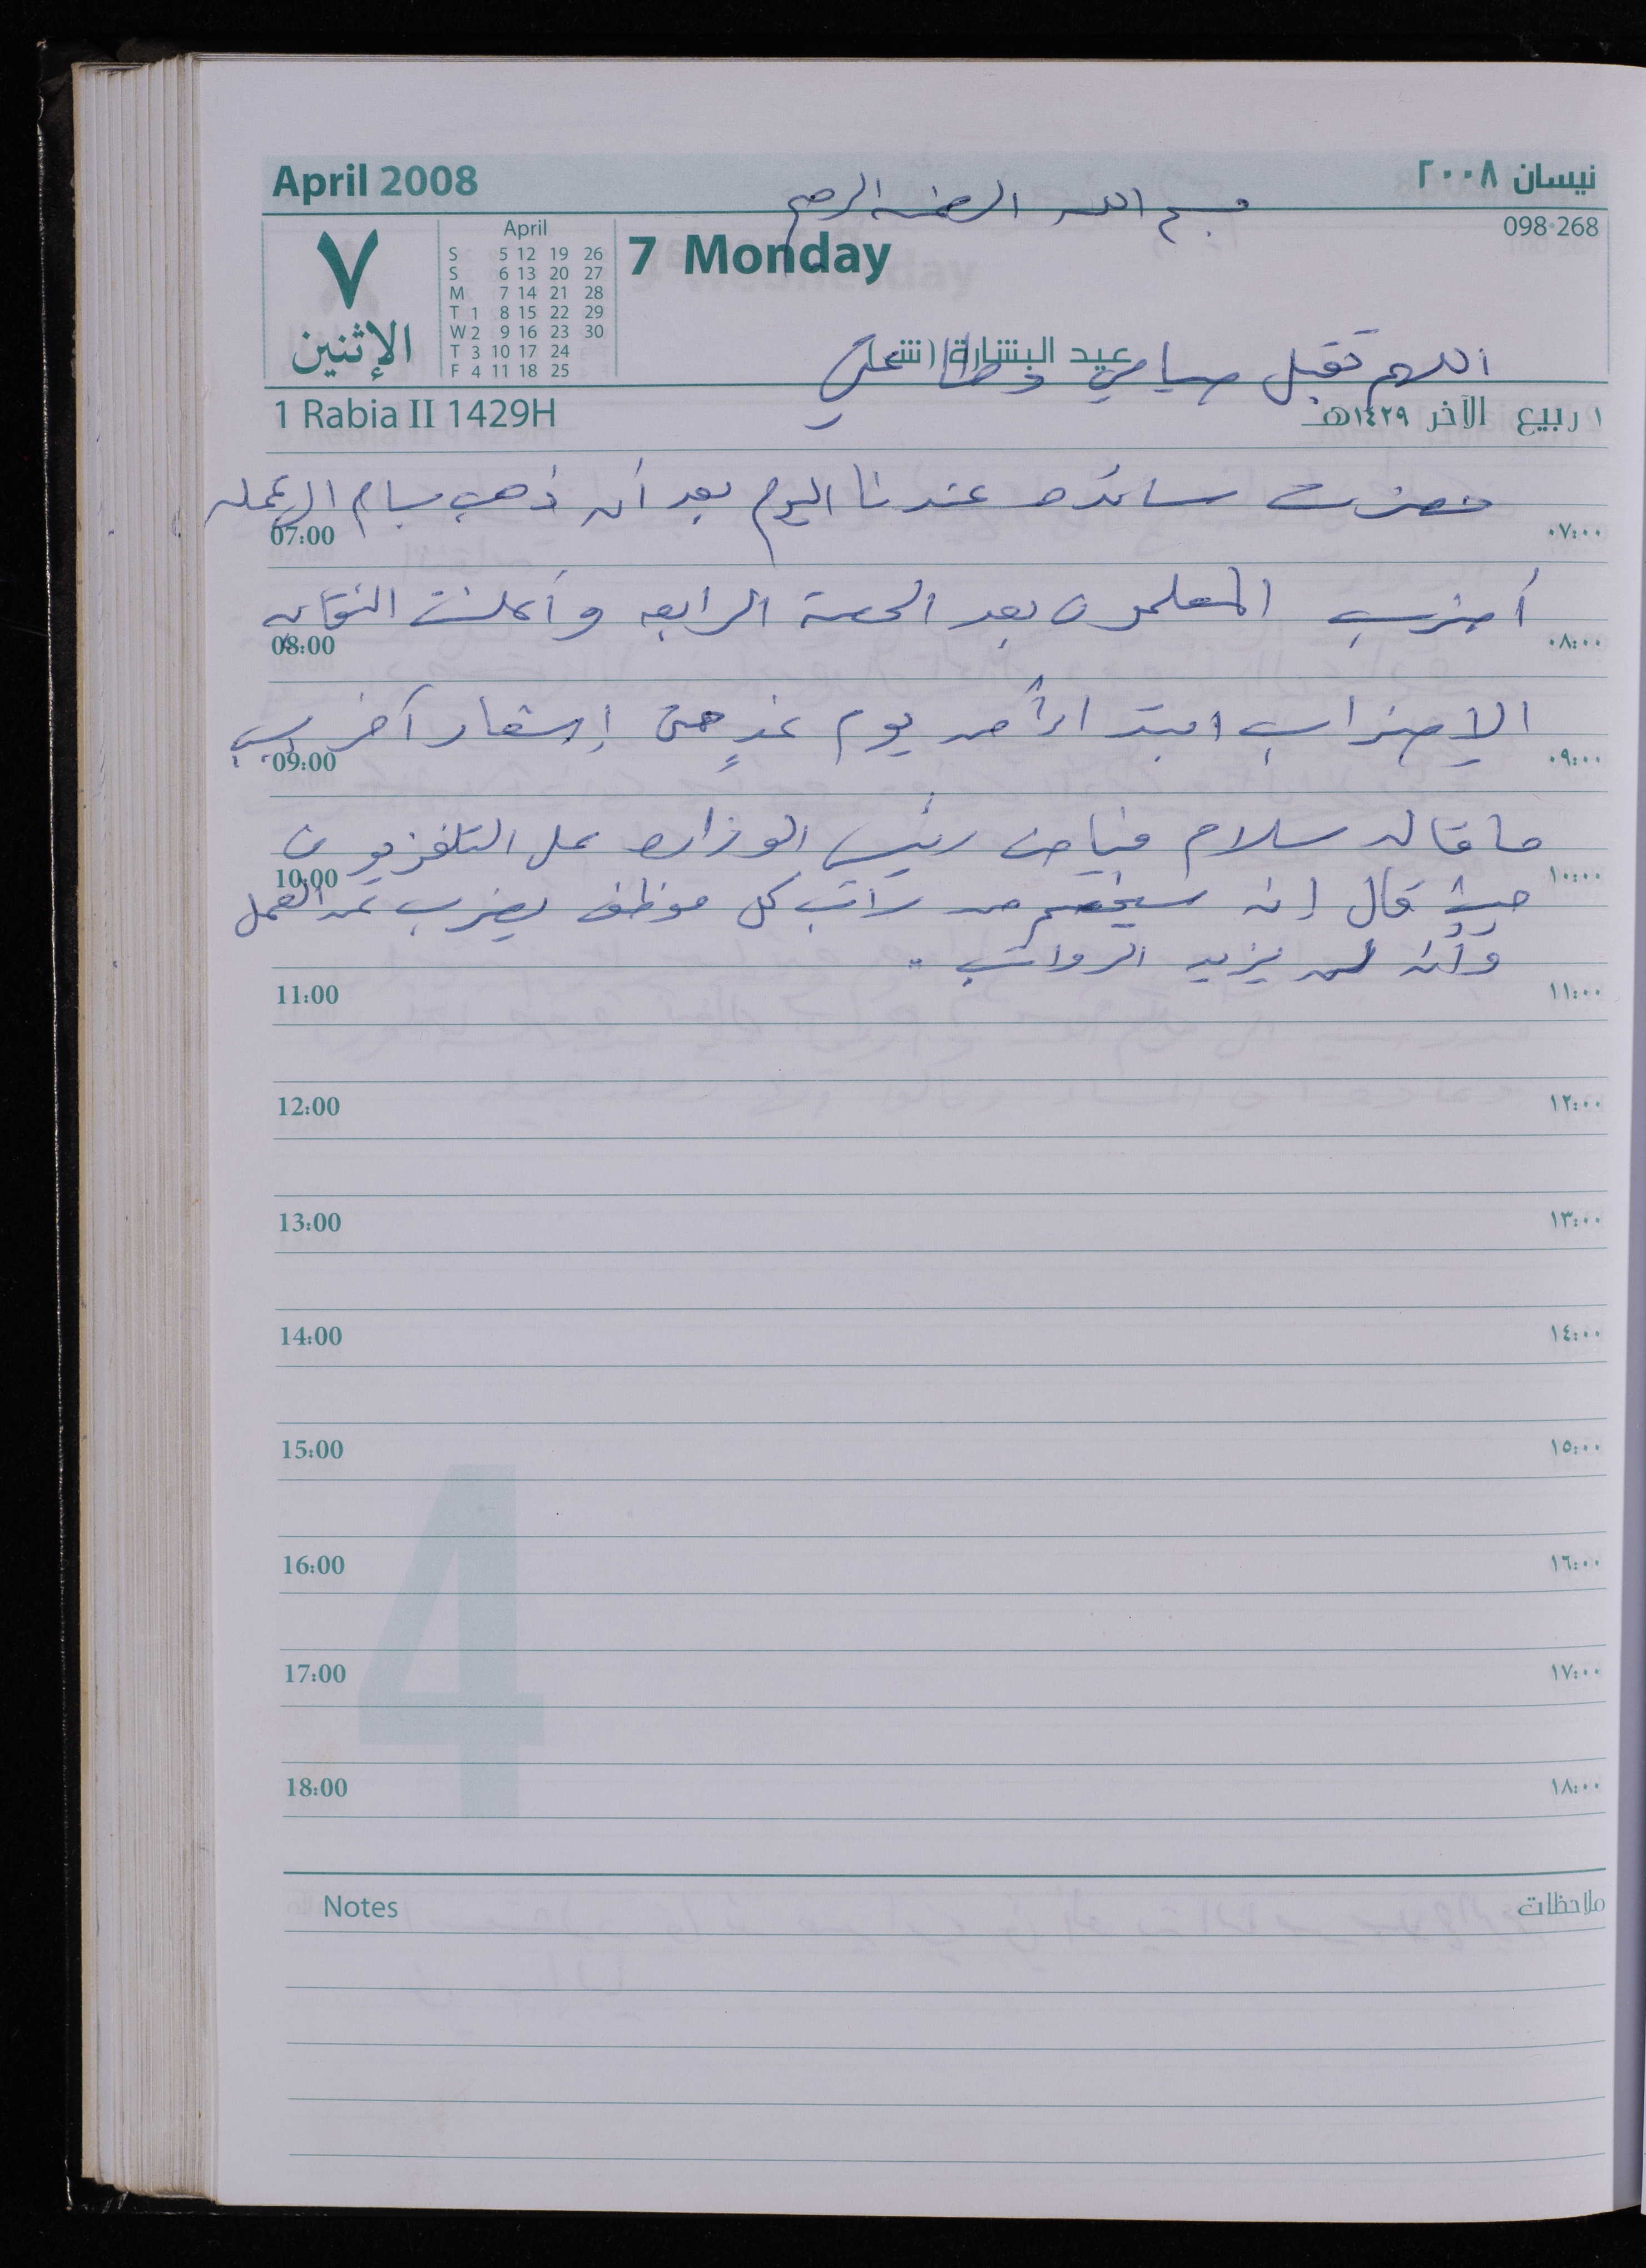 April 2008
نيسان ٢٠٠٨
بسم الله الرحمن الرحيم
098-268
٧
الإثنين
April
S 5 12 19 26
S 6 13 20 27
M 7 14 21 28
T 1 8 15 22 29
W 2 9 16 23 30
T 3 10 17 24
F 4 11 18 25
7 Monday
عيد البشارة
اللهم تقبل صيامي
1 Rabia II 1429H
١ ربيع الآخر ١٤٢٩هـ
حضرت سائده عندنا اليوم بعد أن ذهب بسام الى عمله
07:00 ٠٧:٠٠
أضرب المعلمون بعد الحصة الرابعه وأعلنت النقابه
08:00 ٠٨:٠٠
الإضراب ابتداءً من يوم غدٍ حتى إشعار آخر بسبب
09:00 ٠٩:٠٠
ما قاله سلام فياض رئيس الوزاره على التلفزيون
10:00 ١٠:٠٠
حيث قال إنه سيخصم من راتب كل موظف يضرب عن العمل
وأنه لن يزيد الرواتب ..
11:00 ١١:٠٠
12:00 ١٢:٠٠
13:00 ١٣:٠٠
14:00 ١٤:٠٠
15:00 ١٥:٠٠
16:00 ١٦:٠٠
17:00 ١٧:٠٠
18:00 ١٨:٠٠
4
Notes ملاحظات